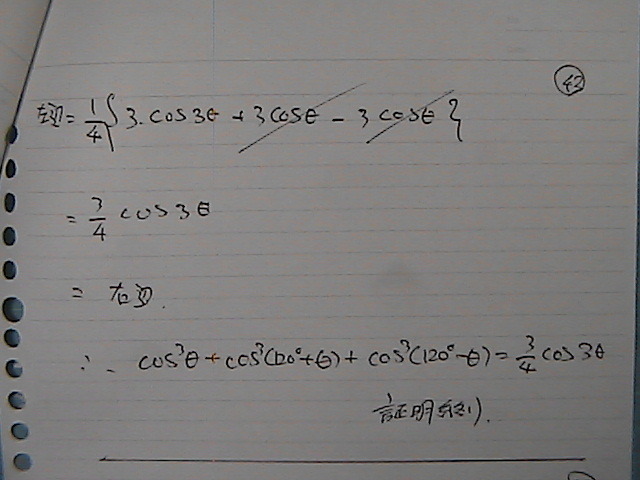 ㊷
左辺 = 1/4 { 3.cos3θ + 3cosθ - 3cosθ }
= 3/4 cos3θ
= 右辺.
∴ cos³θ + cos³(120°+θ) + cos³(120°-θ) = 3/4 cos3θ
証明終り).